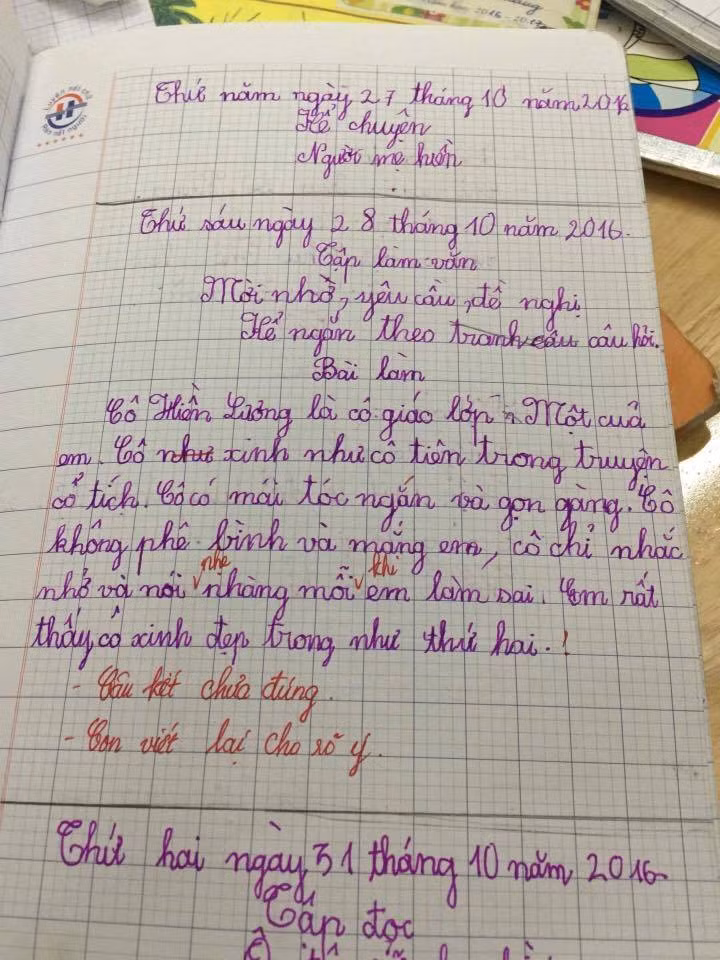 2016 - 2017
Luyện nét chữ
Rèn nết người
Thứ năm ngày 27 tháng 10 năm 2016
Kể chuyện
Người mẹ hiền
Thứ sáu ngày 28 tháng 10 năm 2016.
Tập làm văn
Mời nhờ, yêu cầu, đề nghị
Kể ngắn theo câu hỏi.
Bài làm
Cô Hiền Lương là cô giáo lớp Một của
em. Cô như xinh như cô tiên trong truyện
cổ tích. Cô có mái tóc ngắn và gọn gàng. Cô
không phê bình và mắng em, cô chỉ nhắc
nhẹ khi
nhở và nói nhàng mỗi em làm sai. Em rất
thấy cô xinh đẹp trong như thứ hai.!
- Câu kết chưa đúng.
- Con viết lại cho rõ ý.
Thứ hai ngày 31 tháng 10 năm 2016
Tập đọc